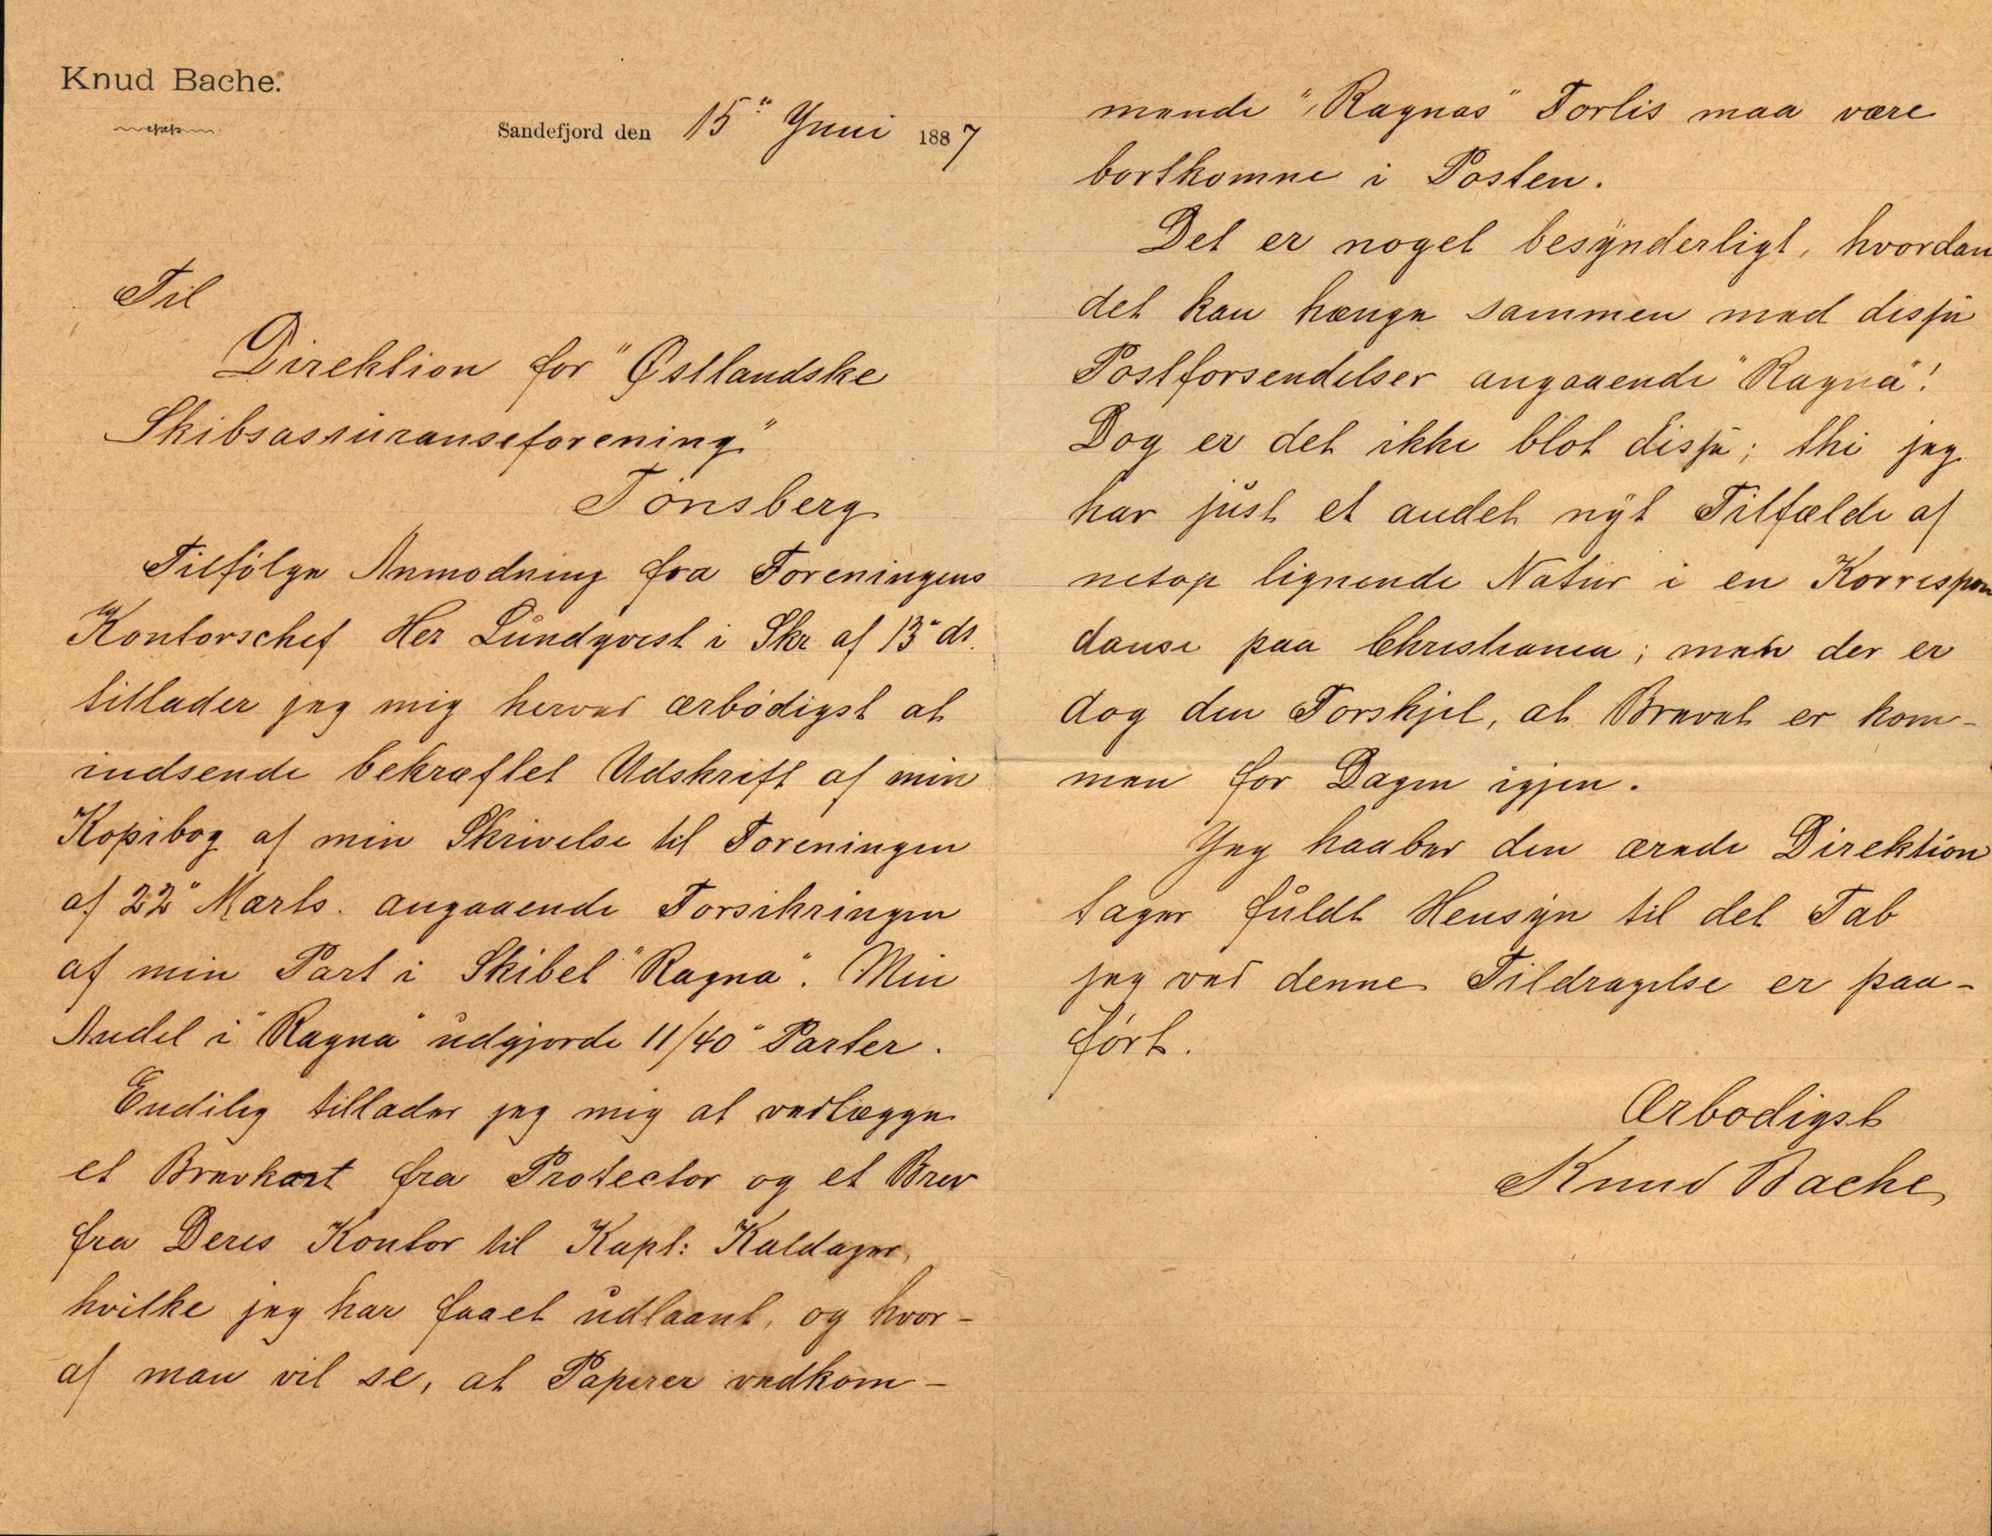 Knud Bache.
Sandefjord den 15" Juni 1887
Til
Direktion for "Østlandske
Skibsassuranseforening"
Tønsberg
Tilfølge Anmodning fra Foreningens
Kontorschef Her Lundqvist i Skr af 13" ds.
tillader jeg mig herved ærbødigst at
indsende bekræftet Udskrift af min
Kopibog af min Skrivelse til Foreningen
af 22" Marts. angaaende Forsikringen
af min Part i Skibet "Ragna". Min
Andel i "Ragna" udgjorde 11/40" Parter.
Endilig tillader jeg mig at vedlægge
et Brevkort fra Protector og et Brev
fra Deres Kontor til Kapt: Kaldager,
hvilke jeg har faaet udlaant, og hvor-
af man vil se, at Papirer vedkom-
mende "Ragnas" Forlis maa være
bortkomne i Posten.
Det er noget besynderligt, hvordan
det kan hænge sammen med disse
Postforsendelser angaaende "Ragna"!
Dog er det ikke blot disse; thi jeg
har just et andet nyt Tilfælde af
netop lignende Natur i en Korrespon
danse paa Christiania; men der er
dog den Forskjel, at Brevet er kom-
men for Dagen igjen.
Jeg haaber den ærede Direktion
tager fuldt Hensyn til det Tab
jeg ved denne Tildragelse er paa-
ført.
Ærbødigst
Knud Bache